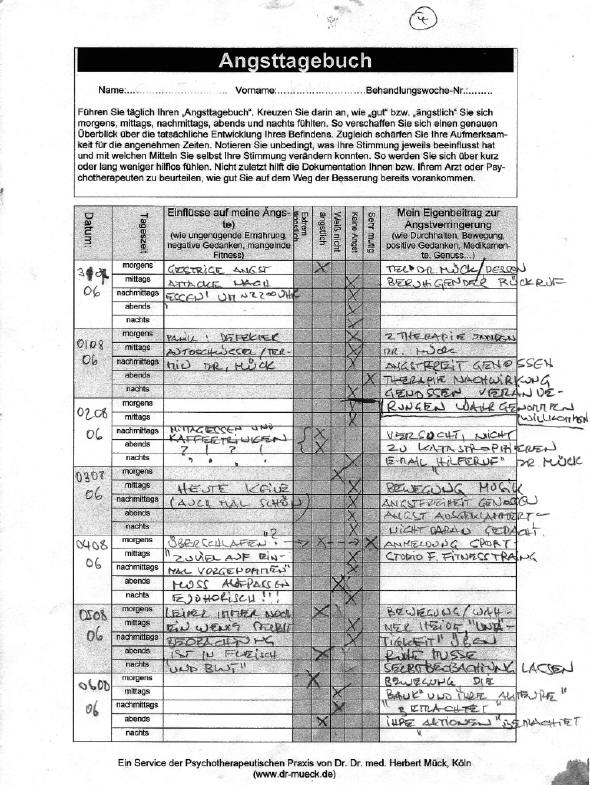 4
Angsttagebuch
Name:............................ Vorname:............................Behandlungswoche-Nr.:........
Führen Sie täglich Ihren „Angsttagebuch". Kreuzen Sie darin an, wie „gut" bzw. „ängstlich" Sie sich
morgens, mittags, nachmittags, abends und nachts fühlten. So verschaffen Sie sich einen genauen
Überblick über die tatsächliche Entwicklung Ihres Befindens. Zugleich schärfen Sie Ihre Aufmerksam-
keit für die angenehmen Zeiten. Notieren Sie unbedingt, was Ihre Stimmung jeweils beeinflusst hat
und mit welchen Mitteln Sie selbst Ihre Stimmung verändern konnten. So werden Sie sich über kurz
oder lang weniger hilflos fühlen. Nicht zuletzt hilft die Dokumentation Ihnen bzw. Ihrem Arzt oder Psy-
chotherapeuten zu beurteilen, wie gut Sie auf dem Weg der Besserung bereits vorankommen.
Datum
Tageszeit
Einflüsse auf meine Ängs-
te)
(wie ungengende Ernährung,
negative Gedanken, mangelnde
Fitness)
Extrem
ängstlich
ängstlich
Weiß nicht
Keine Angst
Sehr mutig
Mein Eigenbeitrag zur
Angstverringerung
(wie Durchhalten, Bewegung,
positive Gedanken, Medikamen-
te, Genuss...)
06
morgens GESTRIGE ANGST X TEL DR. MÜCK/DESSEN
mittags ATTACKE NACH X BERUHIGENDER RÜCKRUF
nachmittags ESSEN! UM 22 00 UHR X
abends X
nachts X
0108
06
morgens PANIK! DEFEKTER X 2 THERAPIE
mittags AUTOSCHLÜSSEL/TER- X DR. MÜCK
nachmittags MIN DR. MÜCK X ANGSTFREIT GENOSSEN
abends X THERAPIE NACHWIRKUNG
nachts X GENOSSEN VERÄNDE-
0208
06
morgens X RUNGEN WAHRGENOMMEN
mittags X WILLKOMMEN
nachmittags MITTAGESSEN UND X VERSUCHT, NICHT
abends KAFFEETRINKEN X ZU KATASTROPHIEREN
nachts ? ! ? ! E-MAIL „HILFERUF" DR MÜCK
06
morgens X
mittags HEUTE KEINE X BEWEGUNG MUSIK
nachmittags (AUCH MAL SCHÖN) X ANGSTFREIHEIT GENOSSEN
abends X ANGST AUSGEKLAMMERT-
nachts X NICHT DARAN GEDACHT.
0408
06
morgens ÜBERSCHLAFEN? "?" X X ANMELDUNG SPORT-
mittags "ZUVIEL AUF EIN- X STUDIO F. FITNESSTRAING
nachmittags MAL VORGENOMMEN" X
abends MUSS AUFPASSEN X
nachts EUPHORISCH!!! X
0508
06
morgens LEIDER IMMER NOCH X BEWEGUNG/WAH-
mittags EIN WENIG SELBST X NER HEIDE "UNTÄ-
nachmittags BEOBACHTUNG X TIGKEIT" ÜBEN
abends IST IN FLEISCH X
nachts "UND BLUT" X SELBSTBEOBACHTUNG LASSEN
06
morgens X BEWEGUNG DIE
mittags X BANK" UND IHRE AKTEURE"
nachmittags X "BETRACHTET"
abends X IHRE AKTIONEN "BETRACHTET
nachts "
Ein Service der Psychotherapeutischen Praxis von Dr. Dr. med. Herbert Mück, Köln
(www.dr-mueck.de)